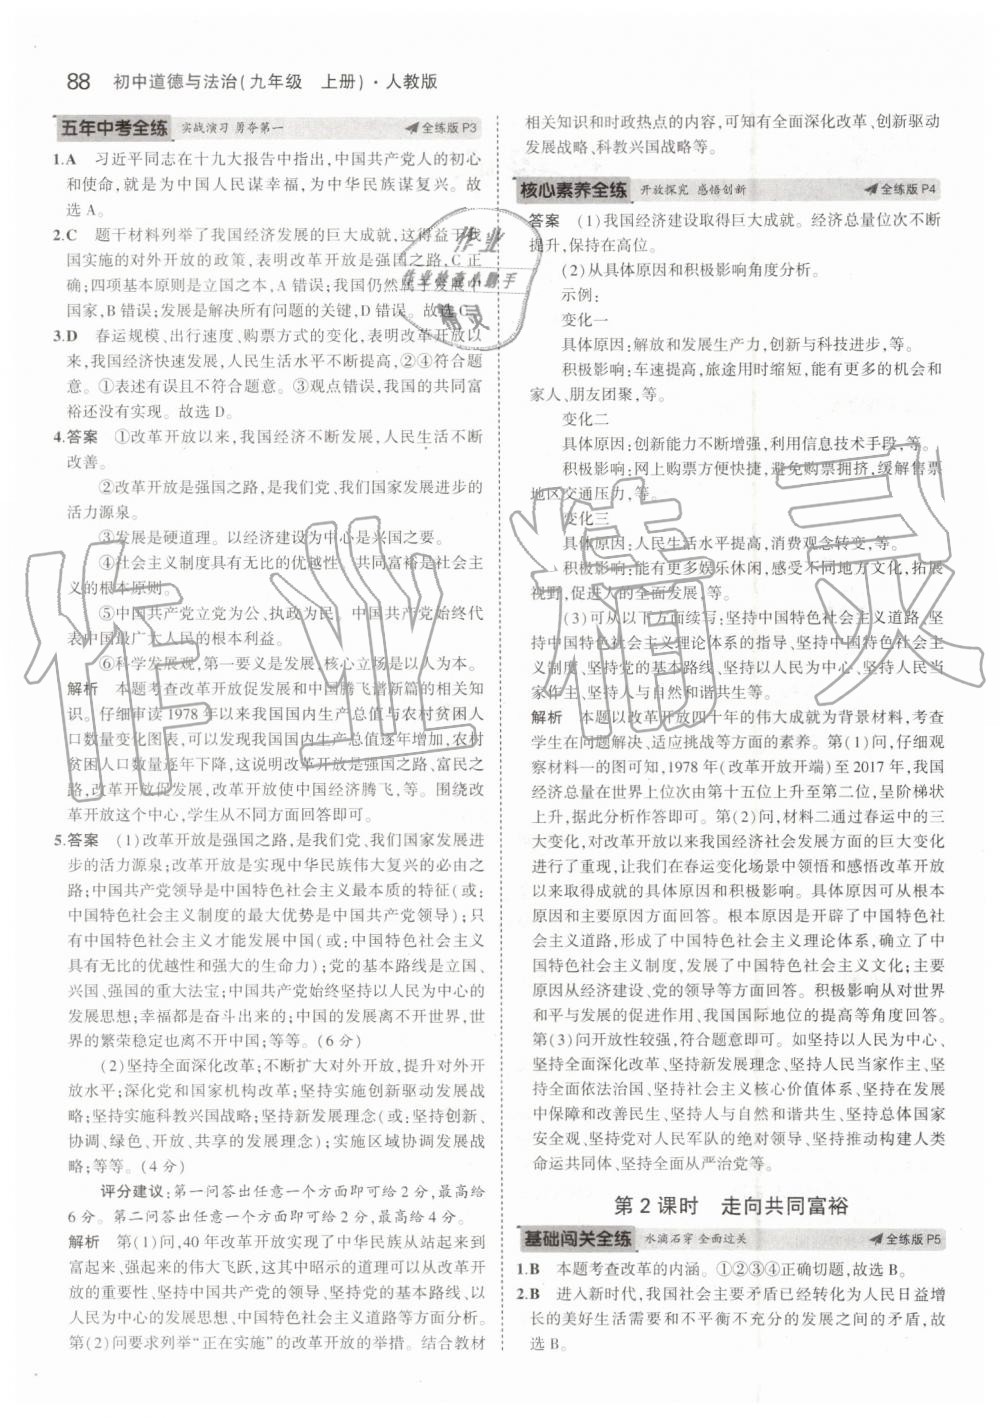 88 初中道德与法治(九年级 上册)·人教版
五年中考全练 实战演习 勇夺第一 全练版 P3
1.A 习近平同志在十九大报告中指出,中国共产党人的初心
和使命,就是为中国人民谋幸福,为中华民族谋复兴。故
选 A。
2.C 题干材料列举了我国经济发展的巨大成就,这得益于我
国实施的对外开放的政策,表明改革开放是强国之路,C 正
确;四项基本原则是立国之本,A 错误;我国仍然属于发展中
国家,B 错误;发展是解决所有问题的关键,D 错误。故选 C。
3.D 春运规模、出行速度、购票方式的变化,表明改革开放以
来,我国经济快速发展,人民生活水平不断提高,②④符合题
意。①表述有误且不符合题意。③观点错误,我国的共同富
裕还没有实现。故选 D。
4.答案 ①改革开放以来,我国经济不断发展,人民生活不断
改善。
②改革开放是强国之路,是我们党、我们国家发展进步的
活力源泉。
③发展是硬道理。以经济建设为中心是兴国之要。
④社会主义制度具有无比的优越性。共同富裕是社会主义
的根本原则。
⑤中国共产党立党为公、执政为民。中国共产党始终代
表中国最广大人民的根本利益。
⑥科学发展观,第一要义是发展,核心立场是以人为本。
解析 本题考查改革开放促发展和中国腾飞谱新篇的相关知
识。仔细审读 1978 年以来我国国内生产总值与农村贫困人
口数量变化图表,可以发现我国国内生产总值逐年增加,农村
贫困人口数量逐年下降,这说明改革开放是强国之路、富民之
路,改革开放促发展、改革开放使中国经济腾飞,等。围绕改
革开放这个中心,学生从不同方面回答即可。
5.答案 (1)改革开放是强国之路,是我们党、我们国家发展进
步的活力源泉;改革开放是实现中华民族伟大复兴的必由之
路;中国共产党领导是中国特色社会主义最本质的特征(或:
中国特色社会主义制度的最大优势是中国共产党领导);只
有中国特色社会主义才能发展中国(或:中国特色社会主义
具有无比的优越性和强大的生命力);党的基本路线是立国、
兴国、强国的重大法宝;中国共产党始终坚持以人民为中心的
发展思想;幸福都是奋斗出来的;中国的发展离不开世界,世
界的繁荣稳定也离不开中国;等等。(6 分)
(2)坚持全面深化改革;不断扩大对外开放,提升对外开
放水平;深化党和国家机构改革;坚持实施创新驱动发展战
略;坚持实施科教兴国战略;坚持新发展理念(或:坚持创新、
协调、绿色、开放、共享的发展理念);实施区域协调发展战
略;等等。(4 分)
评分建议:第一问答出任意一个方面即可给 2 分,最高给
6 分。第二问答出任意一个方面即可给 2 分,最高给 4 分。
解析 第(1)问,40 年改革开放实现了中华民族从站起来到
富起来、强起来的伟大飞跃,这其中昭示的道理可从改革开
放、中国共产党的领导、中国特色社会主义、党的基本路线、以
人民为中心的发展思想、奋斗创造幸福、全球观念等方面分析。
第(2)问要求列举“正在实施”的改革开放的举措。结合教材
相关知识和时政热点的内容,可知有全面深化改革、创新驱动
发展战略、科教兴国战略等。
核心素养全练 开放探究 感悟创新 全练版 P4
答案 (1)我国经济建设取得巨大成就。经济总量位次不断
提升,保持在高位。
(2)从具体原因和积极影响角度分析。
示例:
变化一
具体原因:解放和发展生产力,创新与科技进步,等。
积极影响:车速提高,旅途用时缩短,能有更多的机会和
家人、朋友团聚,等。
变化二
具体原因:创新能力不断增强,利用信息技术手段,等。
积极影响:网上购票方便快捷,避免购票拥挤,缓解售票
地区交通压力,等。
变化三
具体原因:人民生活水平提高,消费观念转变,等。
积极影响:能有更多娱乐休闲,感受不同地方文化,拓展
视野,促进人的全面发展,等。
(3)可从以下方面续写:坚持中国特色社会主义道路、坚
持中国特色社会主义理论体系的指导、坚持中国特色社会主
义制度、坚持党的基本路线、坚持以人民为中心、坚持人民当
家作主、坚持人与自然和谐共生等。
解析 本题以改革开放四十年的伟大成就为背景材料,考查
学生在问题解决、适应挑战等方面的素养。第(1)问,仔细观
察材料一的图可知,1978 年(改革开放开端)至 2017 年,我国
经济总量在世界上位次由第十五位上升至第二位,呈阶梯状
上升,据此分析作答即可。第(2)问,材料二通过春运中的三
大变化,对改革开放以来我国经济社会发展方面的巨大变化
进行了重现,让我们在春运变化场景中领悟和感悟改革开放
以来取得成就的具体原因和积极影响。具体原因可从根本
原因和主要原因方面回答。根本原因是开辟了中国特色社
会主义道路,形成了中国特色社会主义理论体系,确立了中
国特色社会主义制度,发展了中国特色社会主义文化;主要
原因从经济建设、党的领导等方面回答。积极影响从对世界
和平与发展的促进作用,我国国际地位的提高等角度回答。
第(3)问开放性较强,符合题意即可。如坚持以人民为中心、
坚持全面深化改革、坚持新发展理念、坚持人民当家作主、坚
持全面依法治国、坚持社会主义核心价值体系、坚持在发展
中保障和改善民生、坚持人与自然和谐共生、坚持总体国家
安全观、坚持党对人民军队的绝对领导、坚持推动构建人类
命运共同体、坚持全面从严治党等。
第 2 课时 走向共同富裕
基础闯关全练 水滴石穿 全面过关 全练版 P5
1.B 本题考查改革的内涵。①②③④正确切题,故选 B。
2.B 进入新时代,我国社会主要矛盾已经转化为人民日益增
长的美好生活需要和不平衡不充分的发展之间的矛盾,故
选 B。
作业精灵
作业
作业的高人助手
精灵